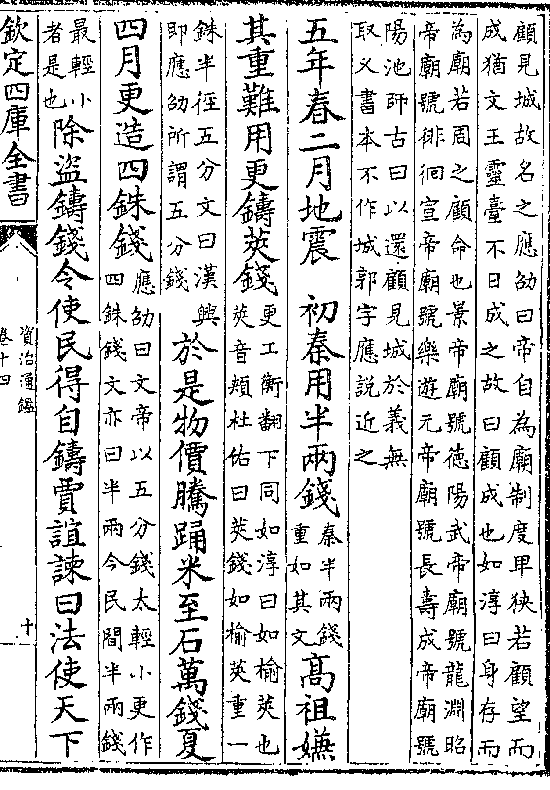 顧見城故名之應劭曰帝自為廟制度卑狹若顧望而
成猶文王靈臺不日成之故曰顧成也如淳曰身存而
為廟若周之顧命也景帝廟號徳陽武帝廟號龍淵昭
帝廟號徘徊宣帝廟號樂遊元帝廟號長壽成帝廟號
陽池師古曰以還顧見城於義無
取又書本不作城郭字應説近之
五年春二月地震　初秦用半兩錢秦半兩錢重如其文高祖嫌
其重難用更鑄莢錢更工衡翻下同如淳曰如榆莢也莢音頰杜佑曰莢錢如榆莢重一
銖半徑五分文曰漢興即應劭所謂五分錢於是物價騰踊米至石萬錢夏
四月更造四銖錢應劭曰文帝以五分錢太輕小更作四銖錢文亦曰半兩今民間半兩錢
最輕小者是也除盜鑄錢令使民得自鑄賈誼諫曰法使天下
欽定四庫全書
資治通鑑
卷十四
十